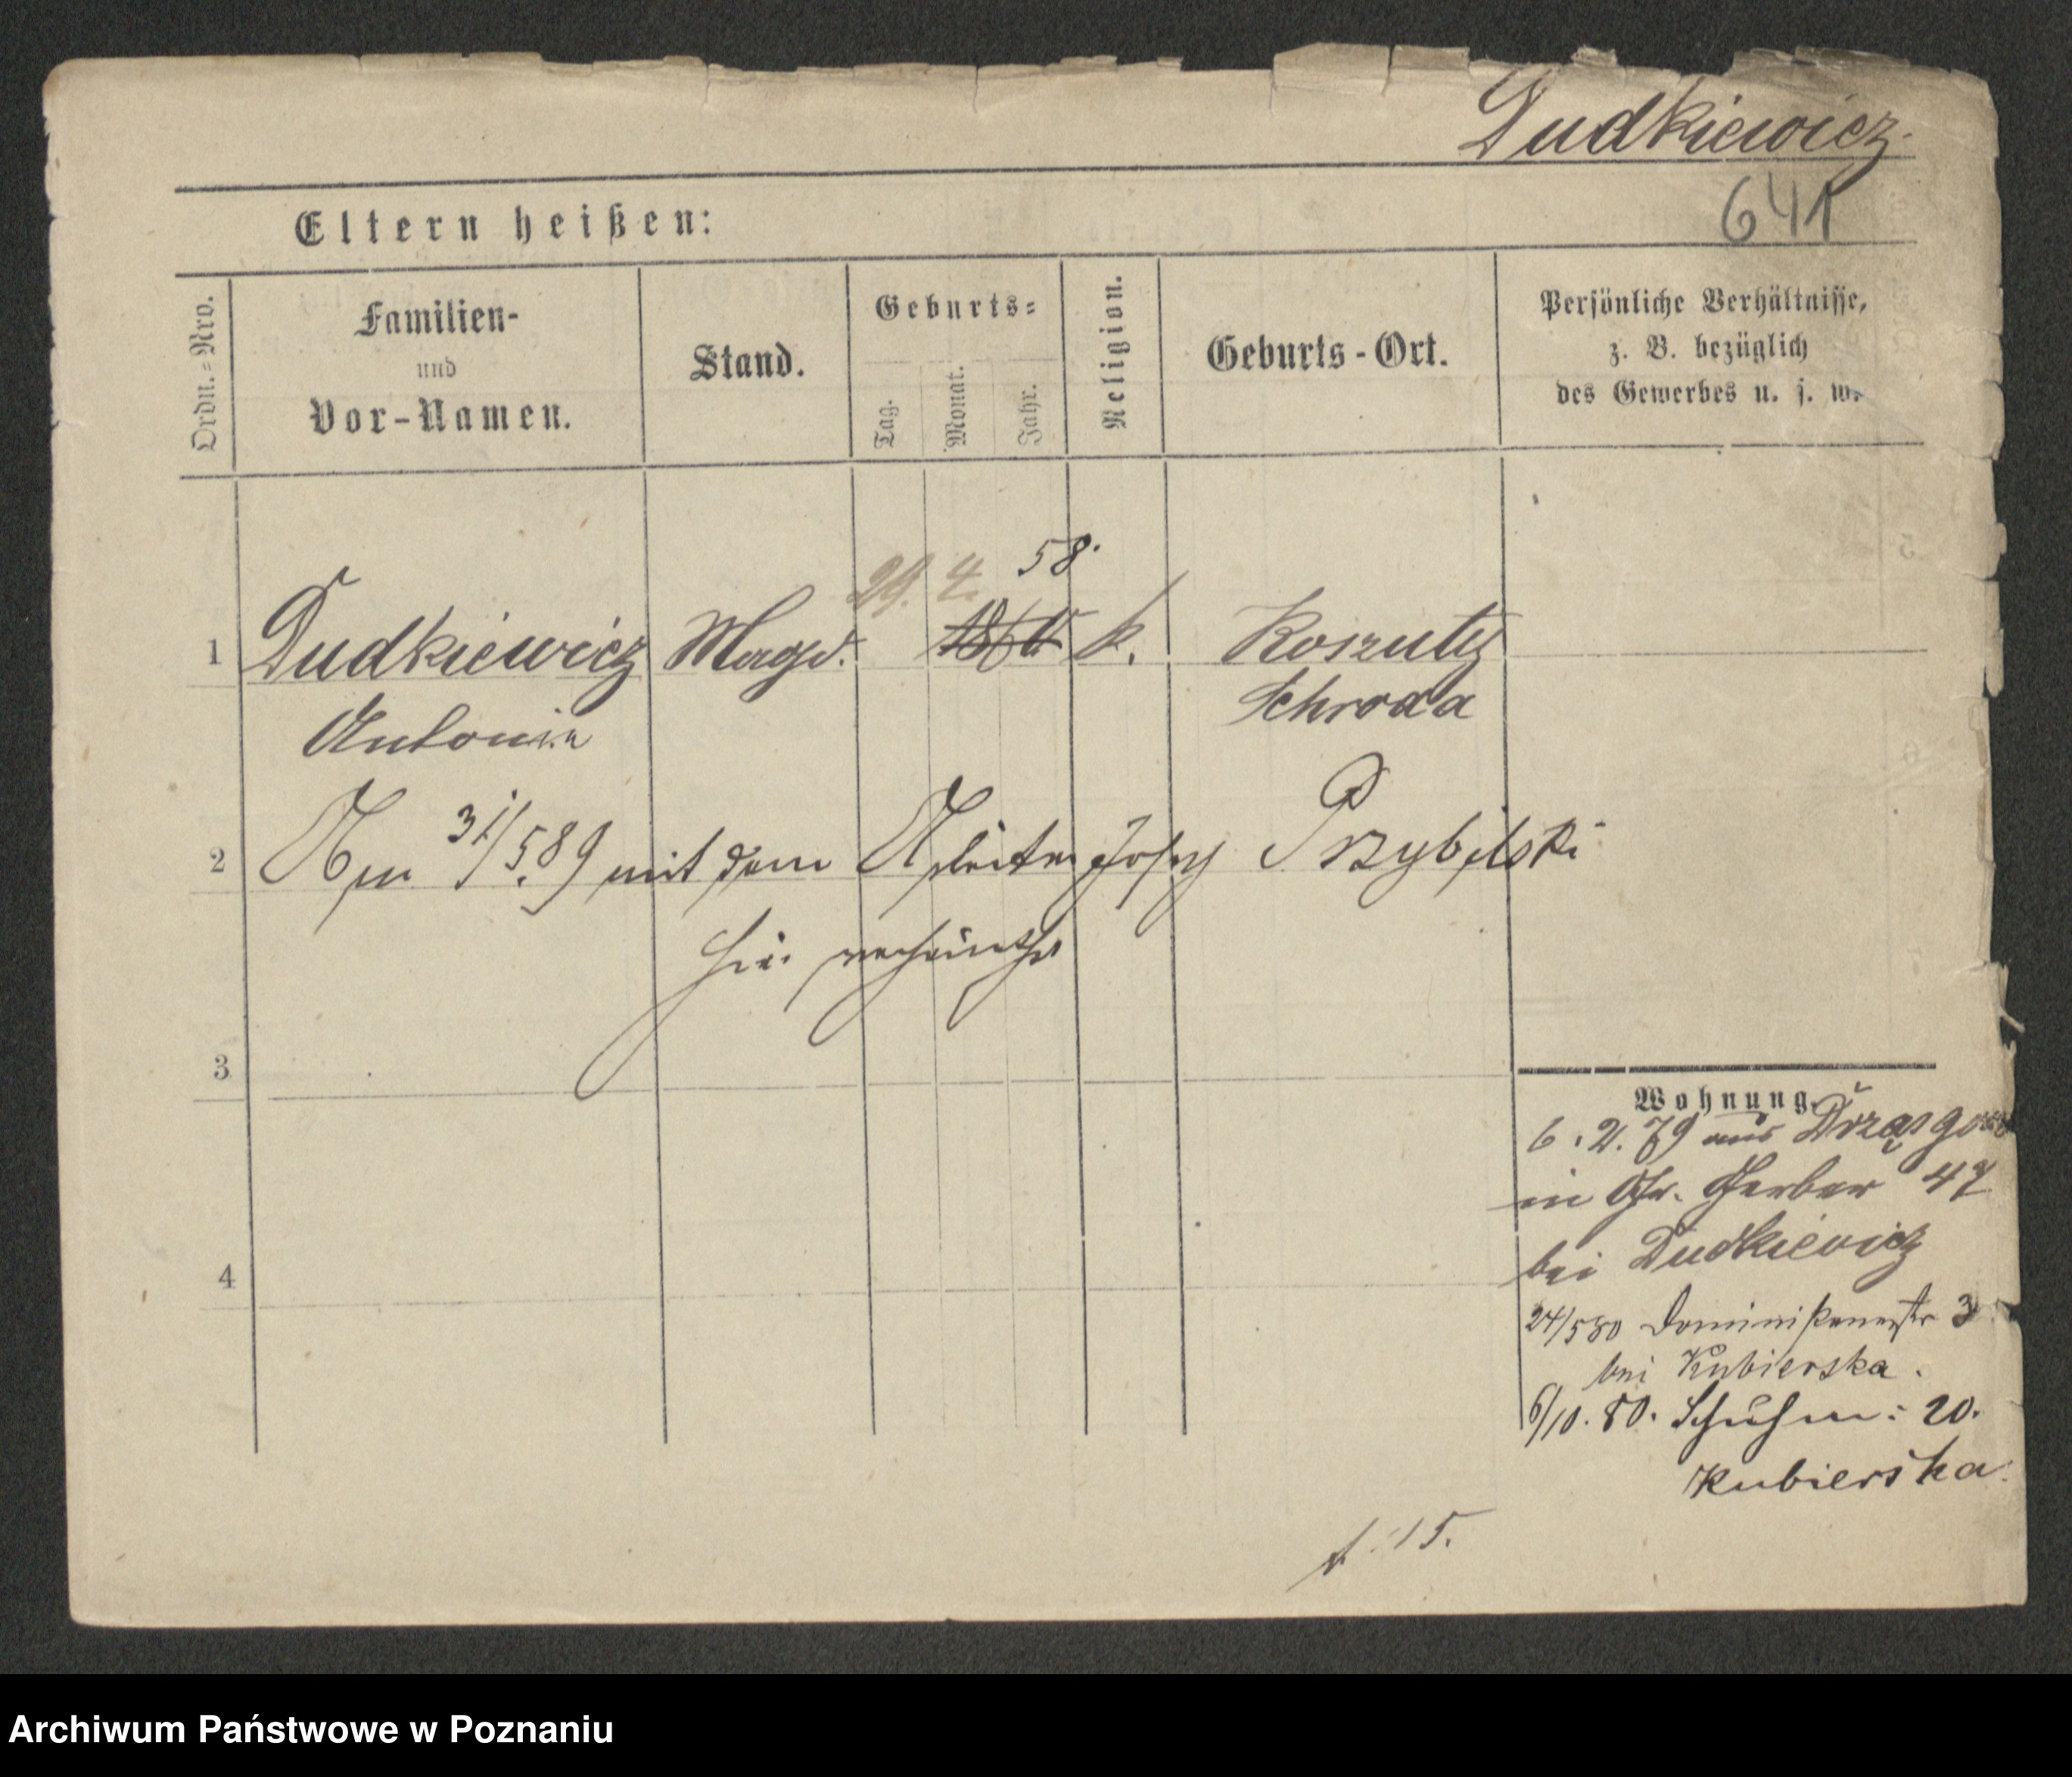 Dudkiewicz.
641
Eltern heißen:
Ordn.=Nro.
Familien-
und
Vor-Namen.
Stand.
Geburts=
Tag.
Monat.
Jahr.
Religion.
Geburts-Ort.
Persönliche Verhältnisse,
z. B. bezüglich
des Gewerbes u. s. w.
29. 4. 58.
1 Dudkiewicz Magd. k. Koszuty
Antonina Schroda
2 Am 31/5.89 mit dem Arbeiter Josef Przybilski
hier
3
4
Wohnung.
6. 2. 79 aus
in Gr. Gerber 47
bei Dudkiewicz
24/5 80 Dominikanerstr 3
bei Kubierska.
6/10. 80. Schuhm: 20.
Kubierska.
15.
Archiwum Państwowe w Poznaniu